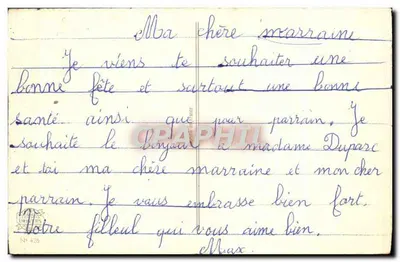 Ma chère marraine
Je viens te souhaiter une
bonne fête et surtout une bonne
santé ainsi que pour parrain. Je
souhaite le bonjour à madame Duparc
et toi ma chère marraine et mon cher
parrain. Je vous embrasse bien fort.
Votre filleul qui vous aime bien.
Max.